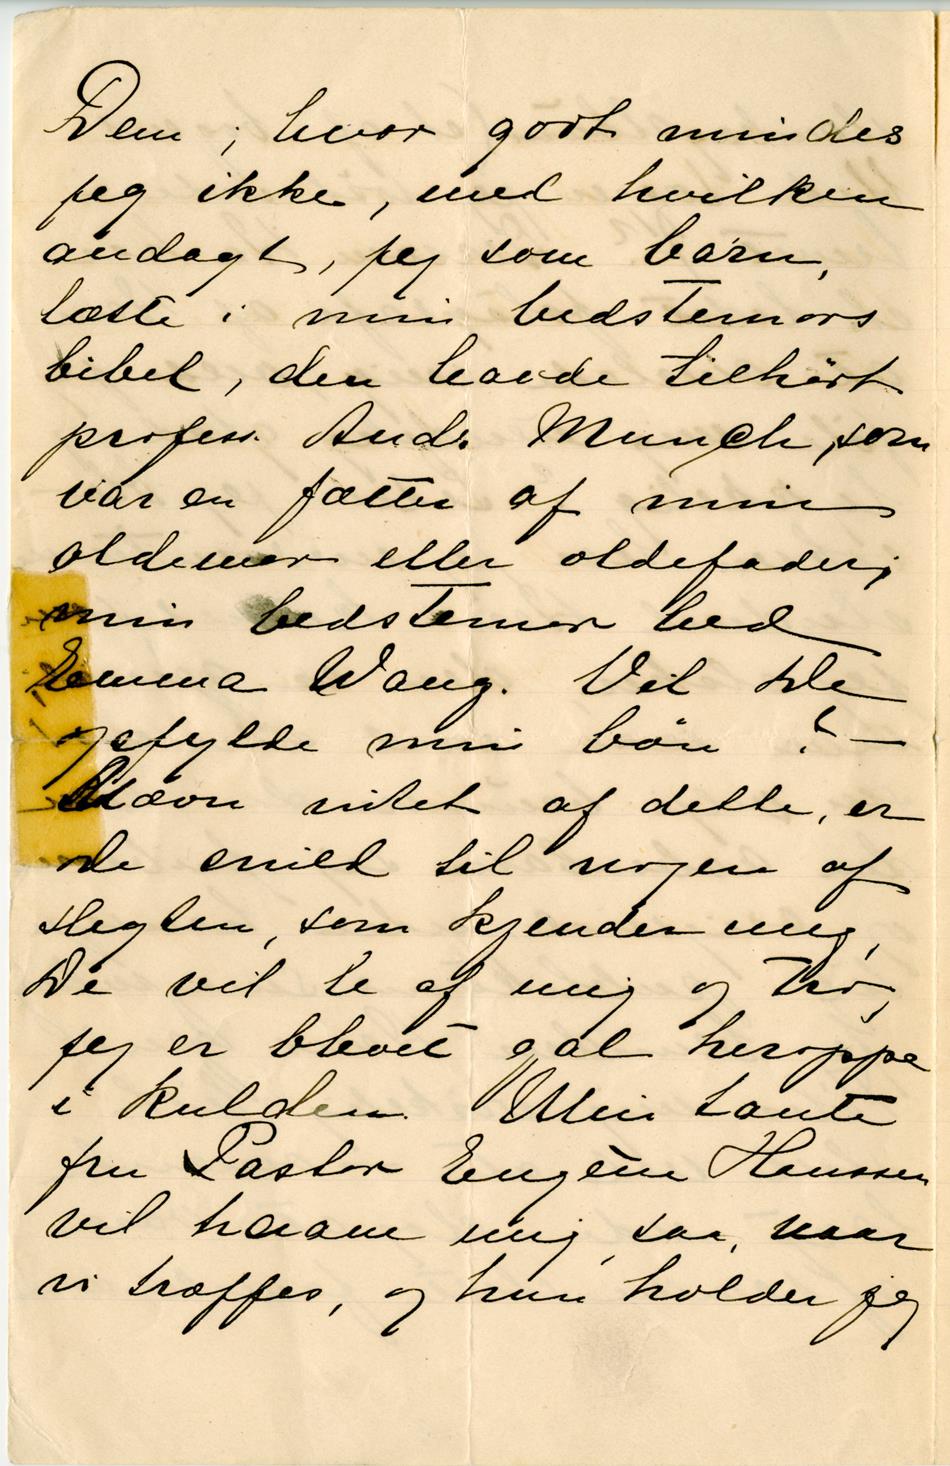 Dem, hvor godt mindes
jeg ikke, med hvilken
andagt, jeg som barn,
læste i min bedstemors
bibel, den havde tilhørt
profess. Andr. Munch, som
var en fætter af min
oldemor eller oldefader;
min bedstemor hed
Emma Wang. Vil De
opfylde min bøn? —
Nævn intet af dette, er
de snild til nogen af
slegten, som kjender mig,
De vil le af mig og tro,
jeg er blevet gal heroppe
i kulden. Min tante
fru Pastor Eugène Hanssen
vil haane mig, saa, naar
vi træffes, og hun holder jeg